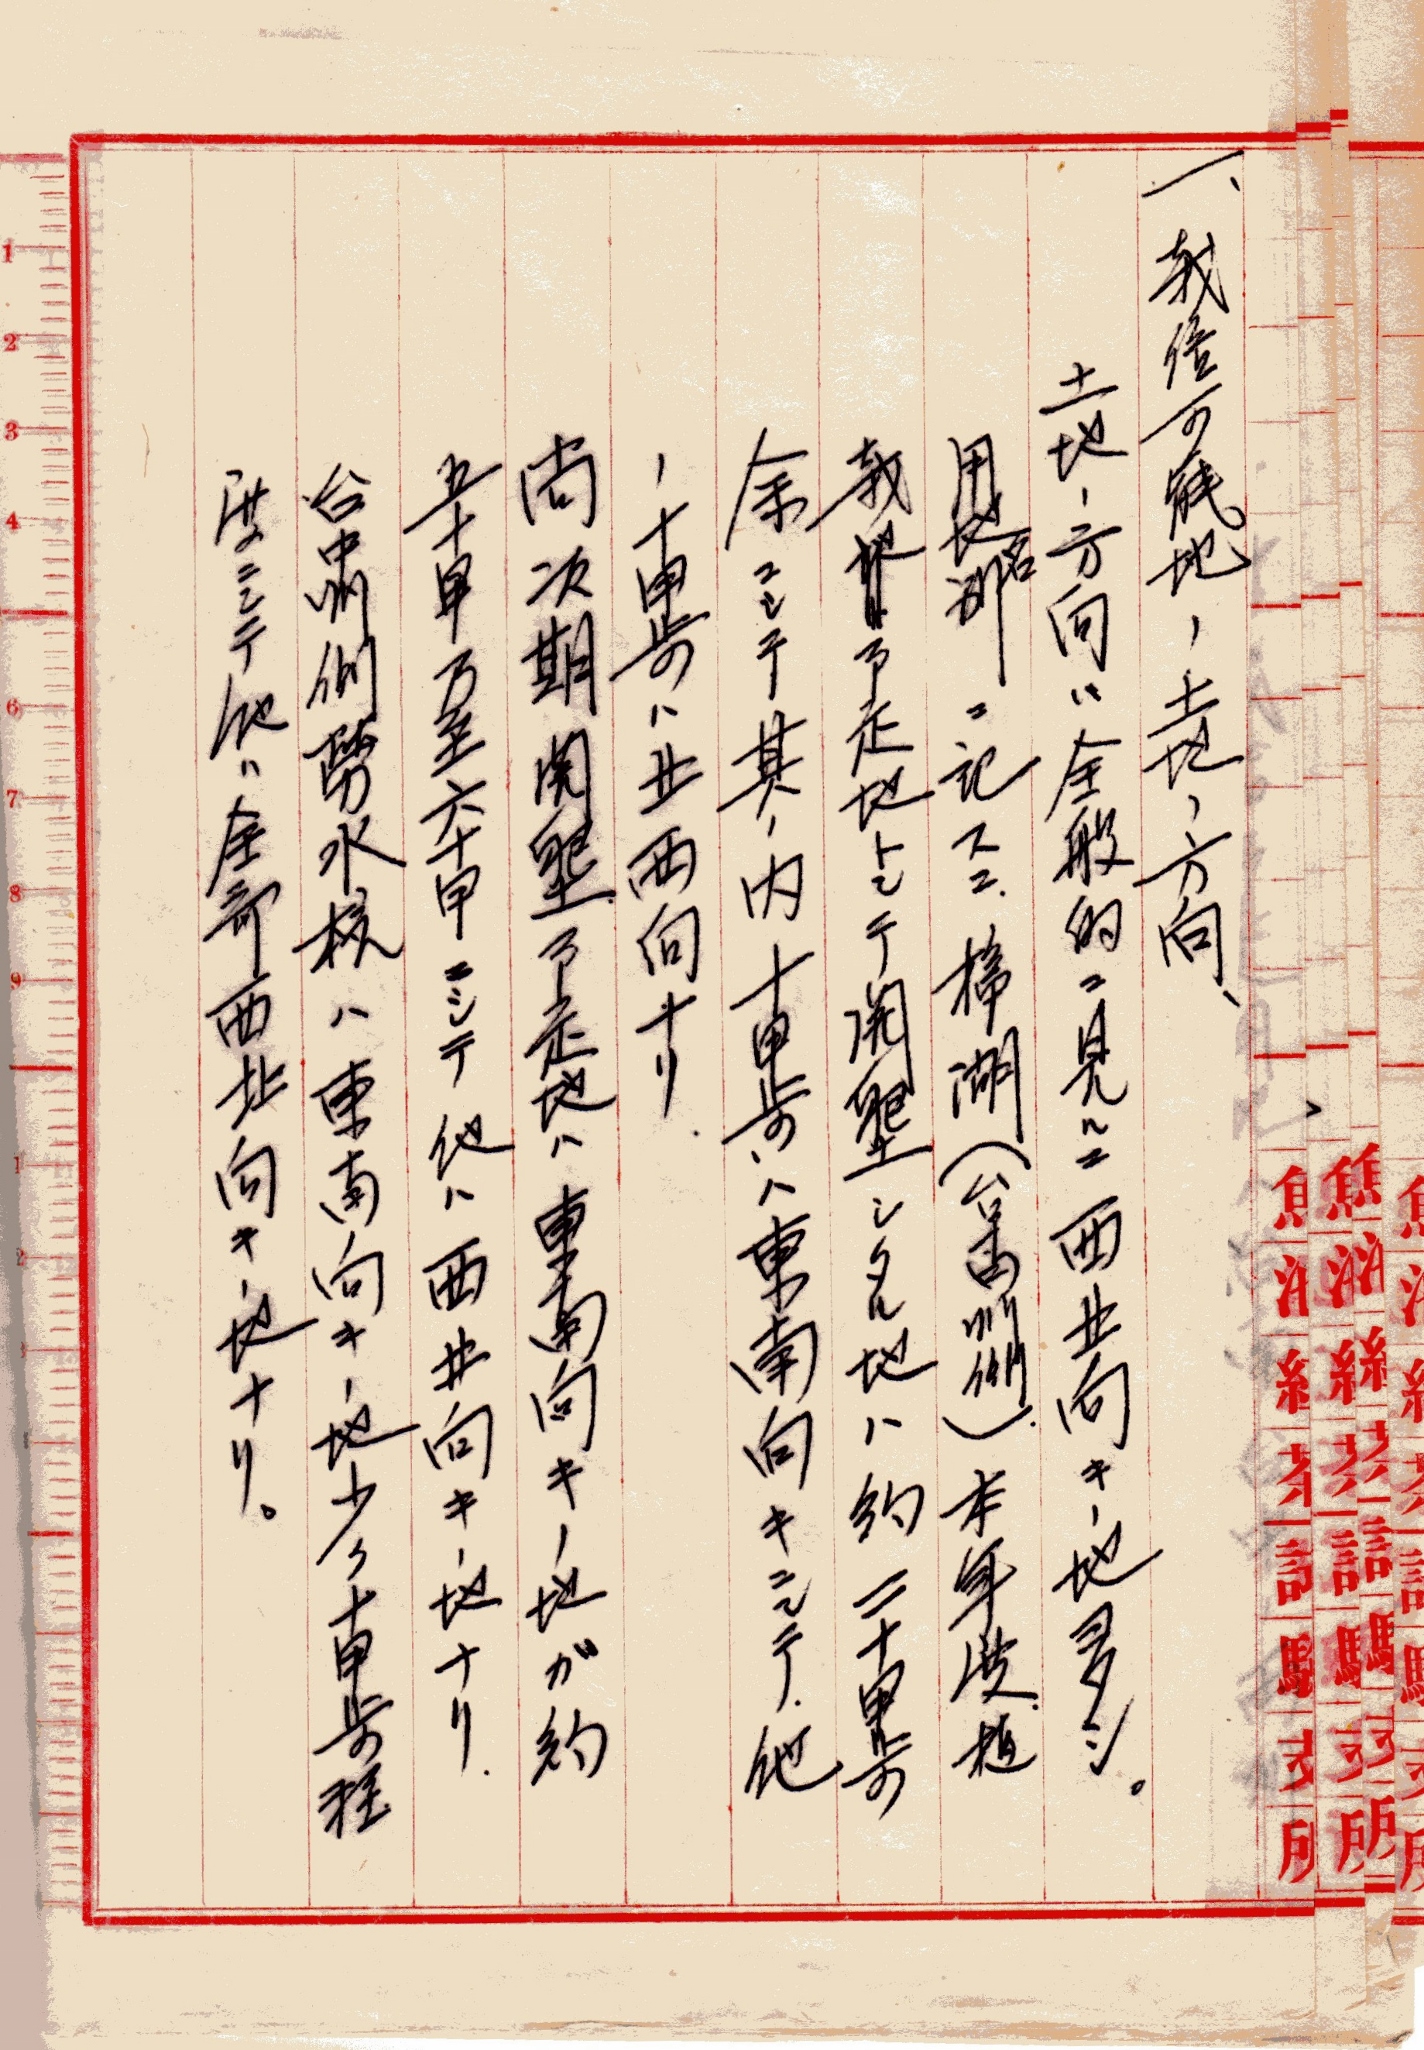 一、栽培可能地ノ土地ノ方向、
土地ノ方向ハ全般的ニ見ルニ西北向キノ地多シ。
用地名別ニ記スニ、掃湖(台中州側)、本年度植
栽地予定地トシテ開墾シタル地ハ約二十甲歩
余ニシテ其ノ内十甲歩ハ東南向キニシテ、他
ノ十甲歩ハ北西向ナリ.
尚次期開墾予定地ハ東南向キノ地が約
五十甲乃至六十甲ニシテ他ハ西北向キノ地ナリ.
台中州側蕃水根ハ東南向キノ地少ク十甲歩程
度ニシテ他ハ全部西北向キノ地ナリ。
魚池紅茶試験支所
1
2
3
4
6
7
8
9
1
2
3